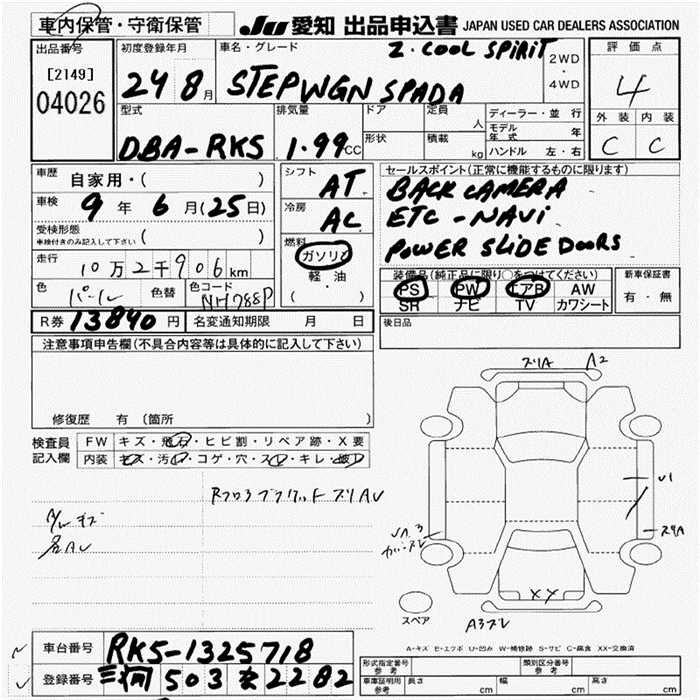 車内保管・守衛保管
JU 愛知 出品申込書 JAPAN USED CAR DEALERS ASSOCIATION
出品番号
[2149]
04026
初度登録年月
24 8月
車名・グレード
Z・COOL SPIRIT
STEPWGN SPADA
2WD
・
4WD
評価点
4
外装 内装
C C
型式
DBA-RK5
排気量
1.99 CC
ドア
定員
人
形状
積載
kg
ディーラー・並行
モデル年式 年
ハンドル 左・右
車歴
自家用・( )
車検
9年 6月(25日)
受検形態
車検付きのみ記入して下さい ( )
走行
10万2千906km
色
パール
色替
色コード
NH788P
シフト
AT
冷房
AC
燃料
ガソリン
軽・油
( ・ )
セールスポイント(正常に機能するものに限ります)
BACK CAMERA
ETC - NAVi
POWER SLIDE DOORS
装備品(純正品に限り○をつけてください)
PS PW エアB AW
SR ナビ TV カワシート
新車保証書
有・無
R券 13840円
名変通知期限 月 日
後日品
注意事項申告欄(不具合内容等は具体的に記入して下さい)
修復歴 有(箇所
検査員
記入欄
FW キズ・飛石・ヒビ割・リペア跡・X要
内装 キズ・汚レ・コゲ・穴・スレ・キレ・破レ
ズリA A2
A3
スペア
XX
A-キズ E-エクボ U-凹み W-補修跡 S-サビ C-腐食 XX-交換済
車台番号
RK5-1325718
登録番号
三河 503 2282
形式指定番号
参考
類別区分番号
参考
車庫証明用
参考
長さ cm
幅 cm
高さ cm